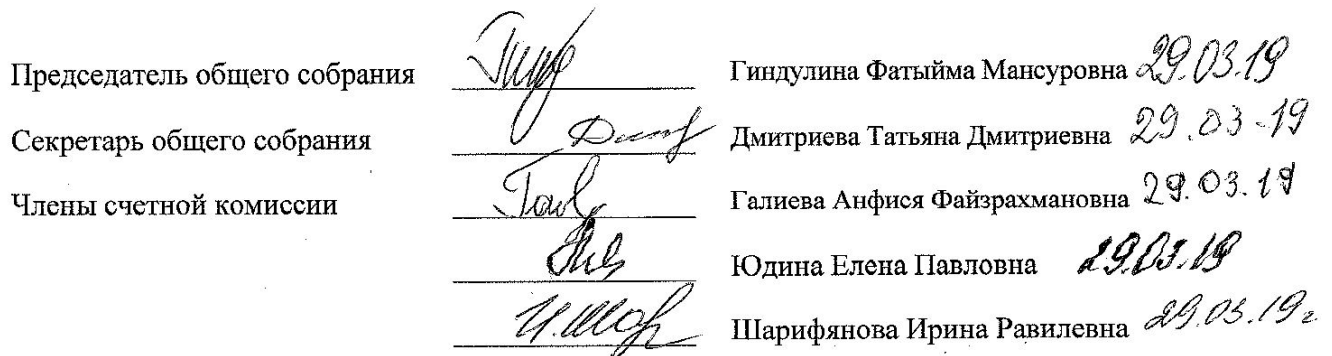 Председатель общего собрания Гиндулина Фатыйма Мансуровна 29.03.19
Секретарь общего собрания Дмитриева Татьяна Дмитриевна 29.03-19
Члены счетной комиссии Галиева Анфися Файзрахмановна 29.03.19
Юдина Елена Павловна 29.03.19
И.Шар Шарифянова Ирина Равилевна 29.03.19г